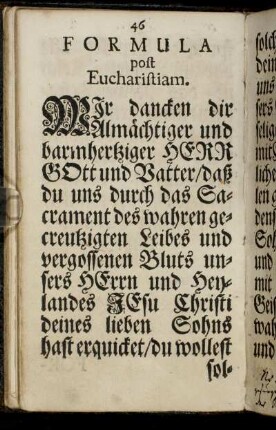 46
FORMULA
post
Eucharistiam.
WIr dancken dir
Almächtiger und
barmhertziger HERR
GOtt und Vatter/daß
du uns durch das Sa-
crament des wahren ge-
creutzigten Leibes und
vergossenen Bluts un-
sers HErrn und Hey-
landes JEsu Christi
deines lieben Sohns
hast erquicket/du wollest
sol-
solch
dein
uns
sers
selbi
mit
liche
len
dem
Soh
und
mit
Geis
wah
und